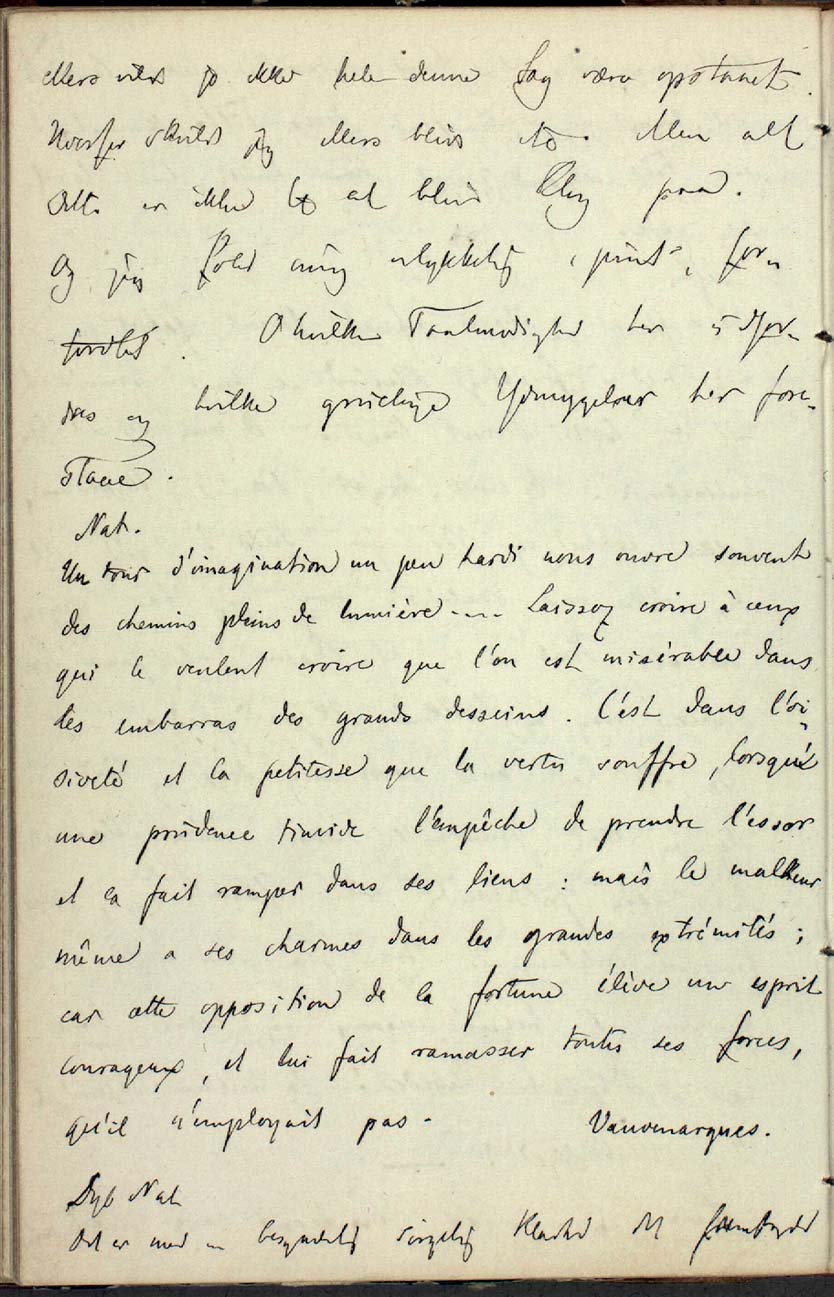 ellers vilde jo ikke hele denne Sag være opstaaet.
Hvorfor skulde jeg ellers blive to. Men alt
dette er ikke til at blive klog paa.
Og jeg føler mig ulykkelig, piint, for-
. O hvilken Taalmodighed her udfor-
dres og hvilke gruelige Ydmygelser her fore-
staae.
Nat.
Un tour d'imagination un peu hardi nous ouvre souvent
des chemins pleins de lumière---- Laissez croire à ceux
qui le veulent croire que l'on est misérable dans
les embarras des grands desseins. C'est dans l'oi-
siveté et la petitesse que la vertu souffre, lorsqu'
une prudence timide l'empêche de prendre l'essor
et la fait ramper dans ses liens : mais le malheur
même a ses charmes dans les grandes extrémités ;
car cette opposition de la fortune élève un esprit
courageux, et lui fait ramasser toutes ses forces,
qu'il n'employait pas. Vauvenargues.
Dyb Nat
Det er med en besynderlig sørgelig Klarhed at